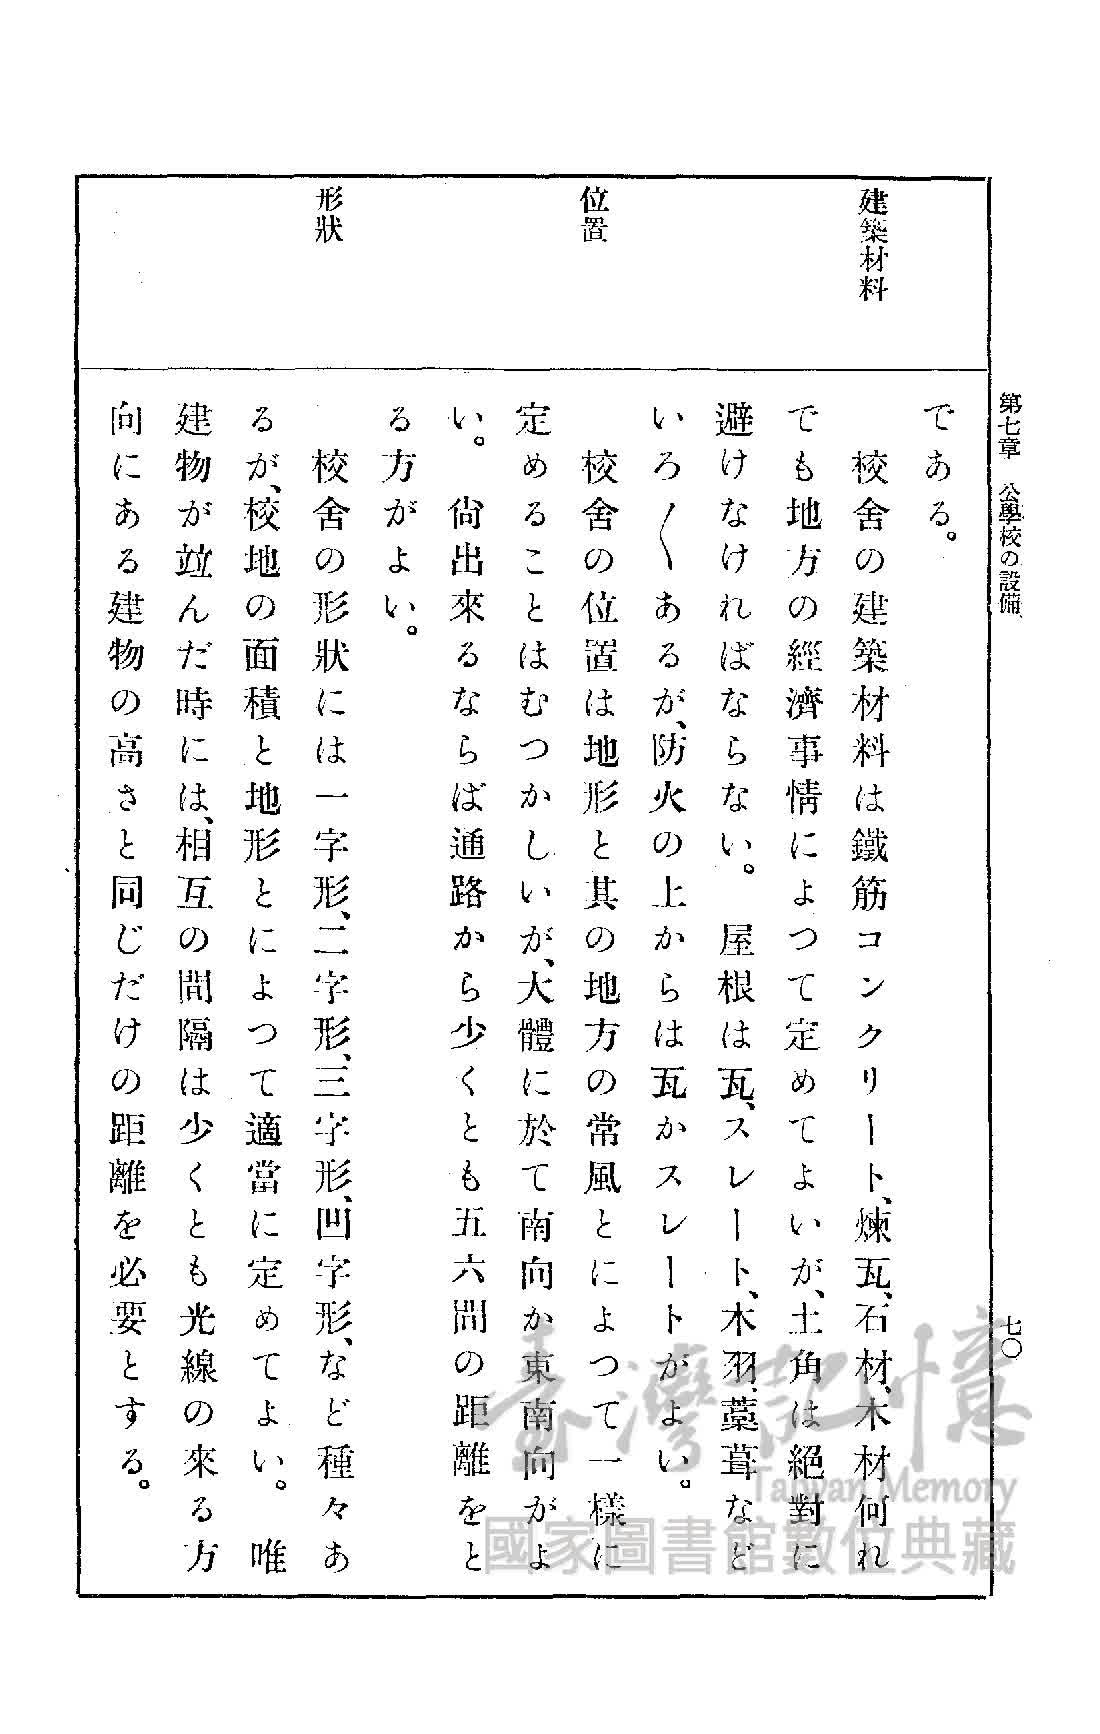 第七章　公學校の設備
七〇
建築材料
位置
形狀
である。
校舍の建築材料は鐵筋コンクリート、煉瓦、石材、木材何れ
でも地方の經濟事情によつて定めてよいが、土角は絕對に
避けなければならない。　屋根は瓦、スレート、木羽、藁葺など
いろ〳〵あるが、防火の上からは瓦かスレートがよい。
校舍の位置は地形と其の地方の常風とによつて一樣に
定めることはむつかしいが、大體に於て南向か東南向がよ
い。　尙出來るならば通路から少くとも五六間の距離をと
る方がよい。
校舍の形狀には一字形、二字形、三字形、凹字形、など種々あ
るが、校地の面積と地形とによつて適當に定めてよい。　唯
建物が竝んだ時には、相互の間隔は少くとも光線の來る方
向にある建物の高さと同じだけの距離を必要とする。
臺灣記憶
Taiwan Memory
國家圖書館數位典藏